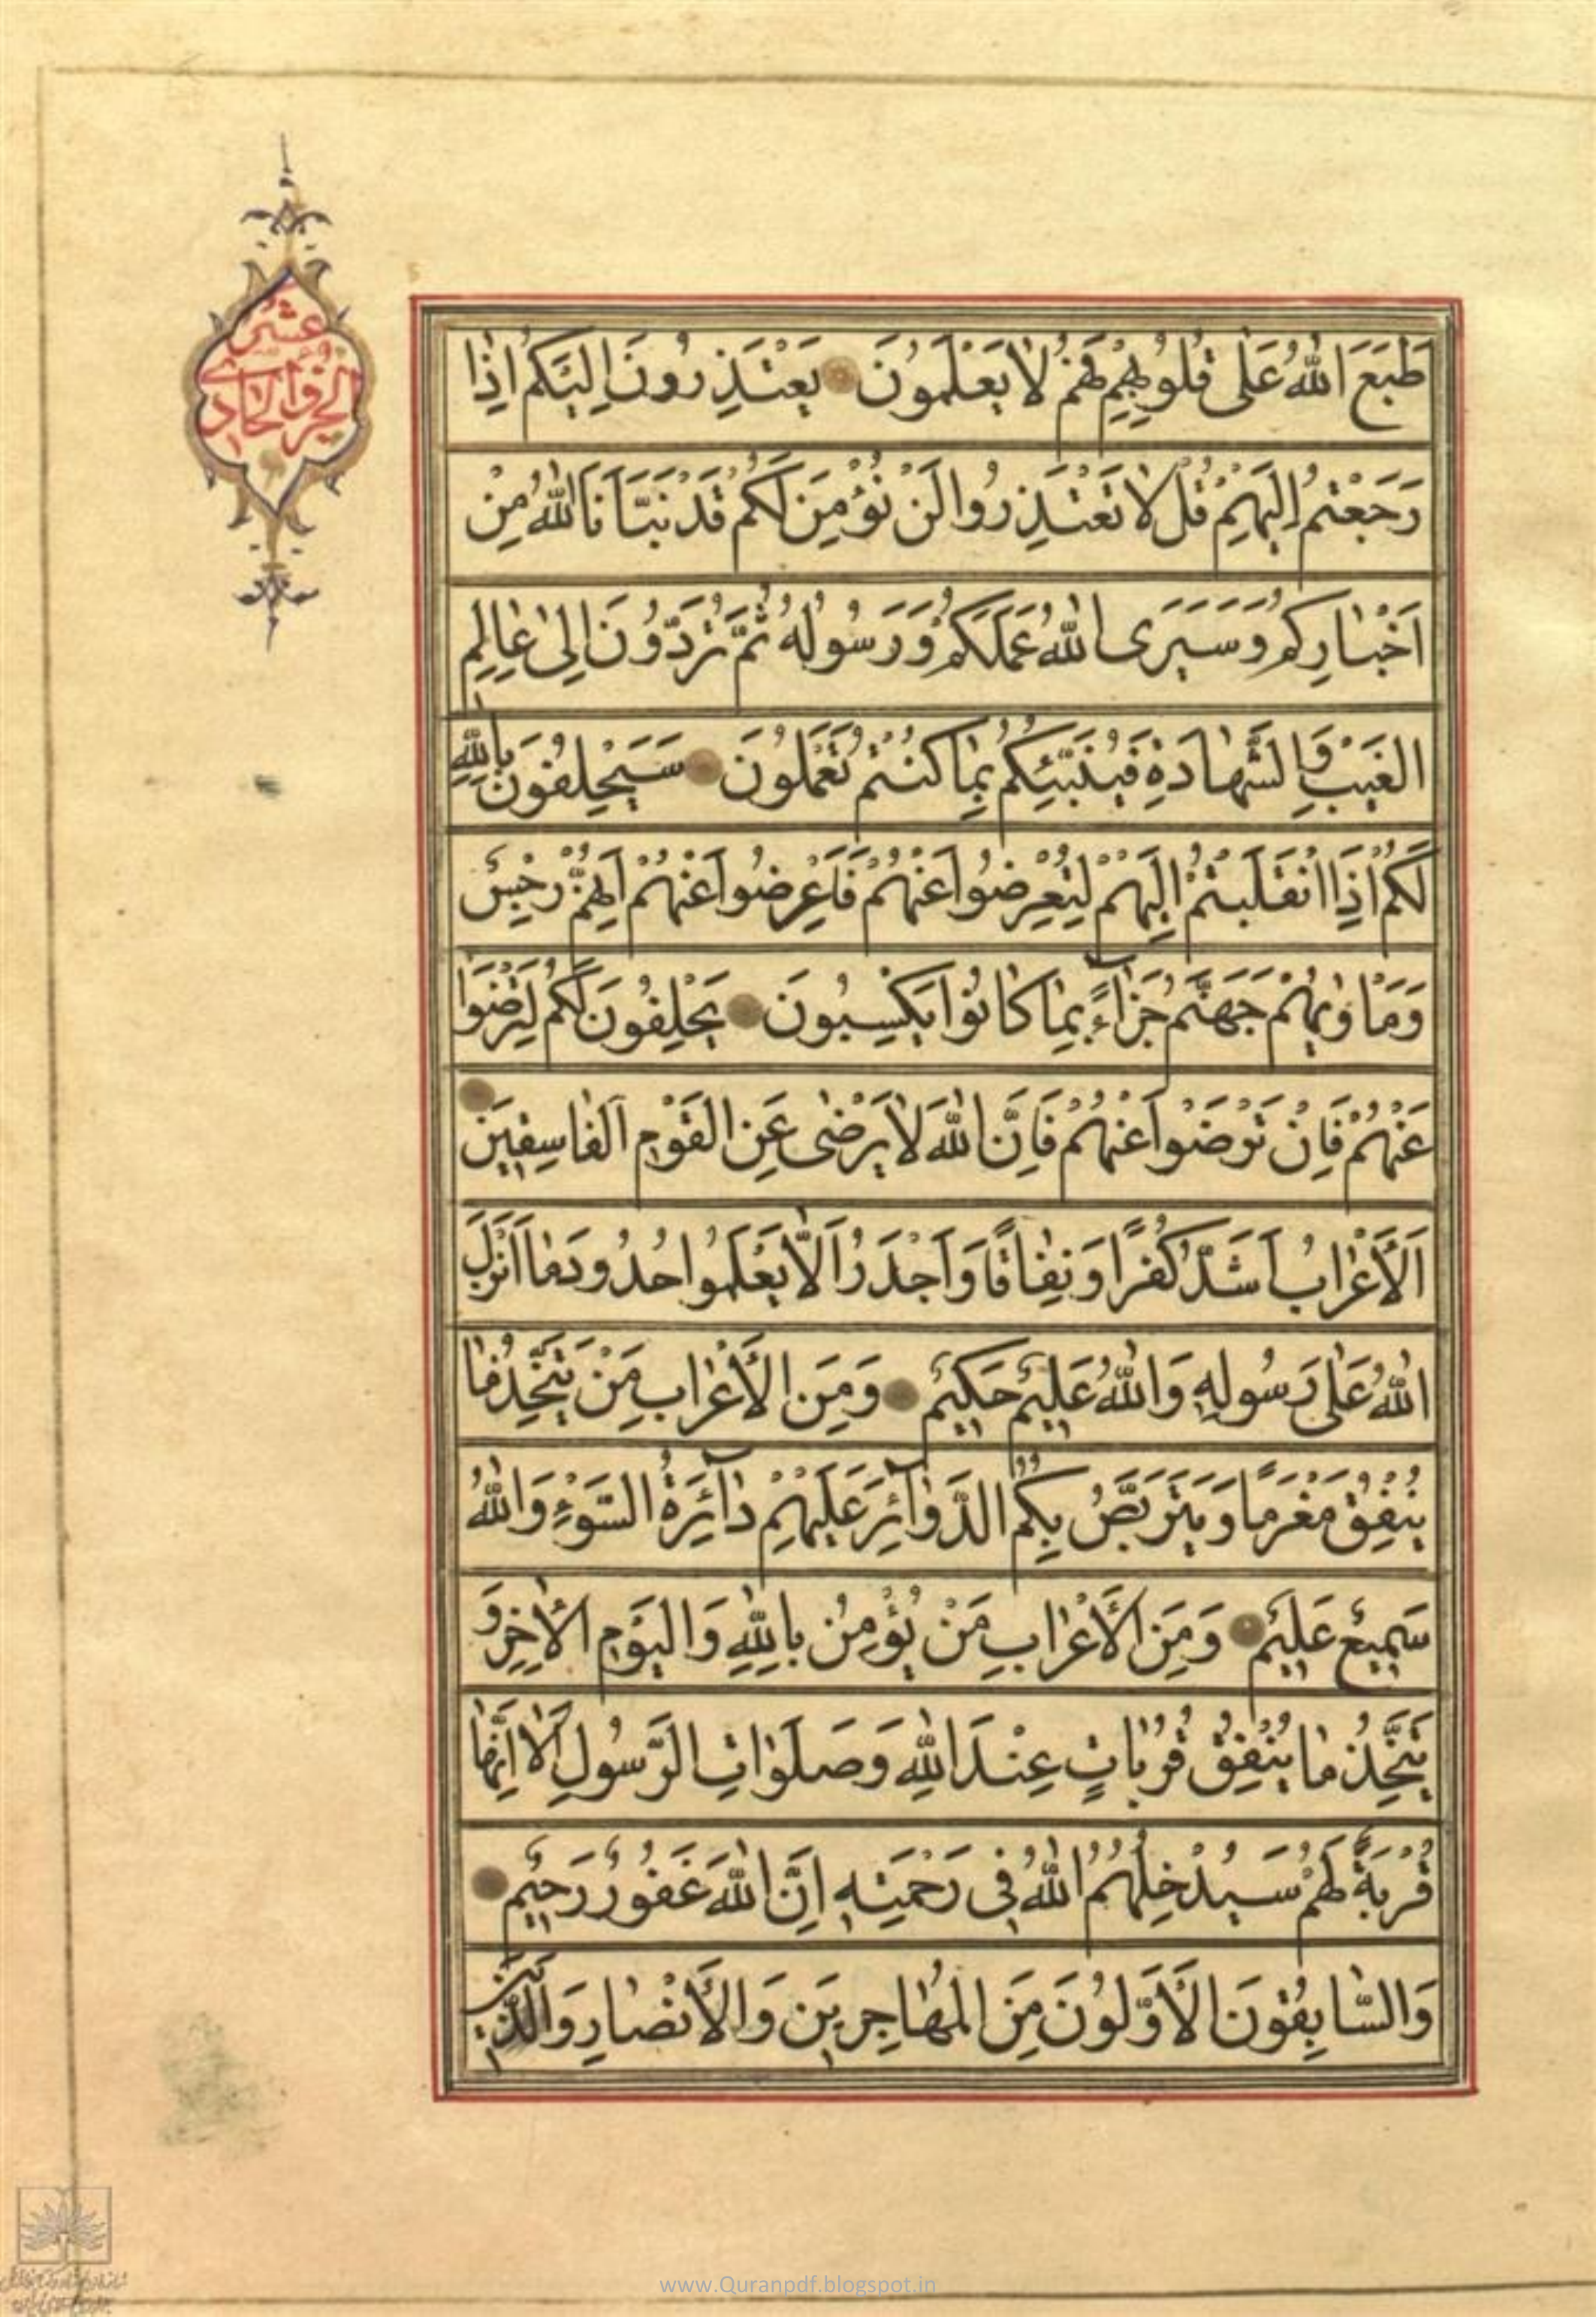 طَبَعَ اللهُ عَلىٰ قُلُوبِهِمْ فَهُمْ لاٰ يَعْلَمُونَ يَعْتَذِرُونَ اِلَيْكُمْ اِذٰا
رَجَعْتُمْ اِلَيْهِمْ قُلْ لاٰ تَعْتَذِرُوا لَنْ نُؤْمِنَ لَكُمْ قَدْ نَبَّاَنَا اللهُ مِنْ
اَخْبٰارِكُمْ وَسَيَرَى اللهُ عَمَلَكُمْ وَرَسُولُهُ ثُمَّ تُرَدُّونَ اِلىٰ عٰالِمِ
الْغَيْبِ وَالشَّهٰادَةِ فَيُنَبِّئُكُمْ بِمٰا كُنْتُمْ تَعْمَلُونَ سَيَحْلِفُونَ بِاللهِ
لَكُمْ اِذَا انْقَلَبْتُمْ اِلَيْهِمْ لِتُعْرِضُوا عَنْهُمْ فَاَعْرِضُوا عَنْهُمْ اِنَّهُمْ رِجْسٌ
وَمَاْوٰيهُمْ جَهَنَّمُ جَزٰآءً بِمٰا كٰانُوا يَكْسِبُونَ يَحْلِفُونَ لَكُمْ لِتَرْضَوْا
عَنْهُمْ فَاِنْ تَرْضَوْا عَنْهُمْ فَاِنَّ اللهَ لاٰ يَرْضٰى عَنِ الْقَوْمِ الْفٰاسِقِينَ
اَلْاَعْرٰابُ اَشَدُّ كُفْرًا وَنِفٰاقًا وَاَجْدَرُ اَلاّٰ يَعْلَمُوا حُدُودَ مٰا اَنْزَلَ
اللهُ عَلىٰ رَسُولِهِ وَاللهُ عَلِيمٌ حَكِيمٌ وَمِنَ الْاَعْرٰابِ مَنْ يَتَّخِذُ مٰا
يُنْفِقُ مَغْرَمًا وَيَتَرَبَّصُ بِكُمُ الدَّوٰآئِرَ عَلَيْهِمْ دٰآئِرَةُ السَّوْءِ وَاللهُ
سَمِيعٌ عَلِيمٌ وَمِنَ الْاَعْرٰابِ مَنْ يُؤْمِنُ بِاللهِ وَالْيَوْمِ الْاٰخِرِ وَ
يَتَّخِذُ مٰا يُنْفِقُ قُرُبٰاتٍ عِنْدَ اللهِ وَصَلَوٰاتِ الرَّسُولِ اَلاٰ اِنَّهٰا
قُرْبَةٌ لَهُمْ سَيُدْخِلُهُمُ اللهُ فِى رَحْمَتِهِ اِنَّ اللهَ غَفُورٌ رَحِيمٌ
وَالسّٰابِقُونَ الْاَوَّلُونَ مِنَ الْمُهٰاجِرِينَ وَالْاَنْصٰارِ وَالَّذِينَ
الجزو الحادى
عشر
www.Quranpdf.blogspot.in